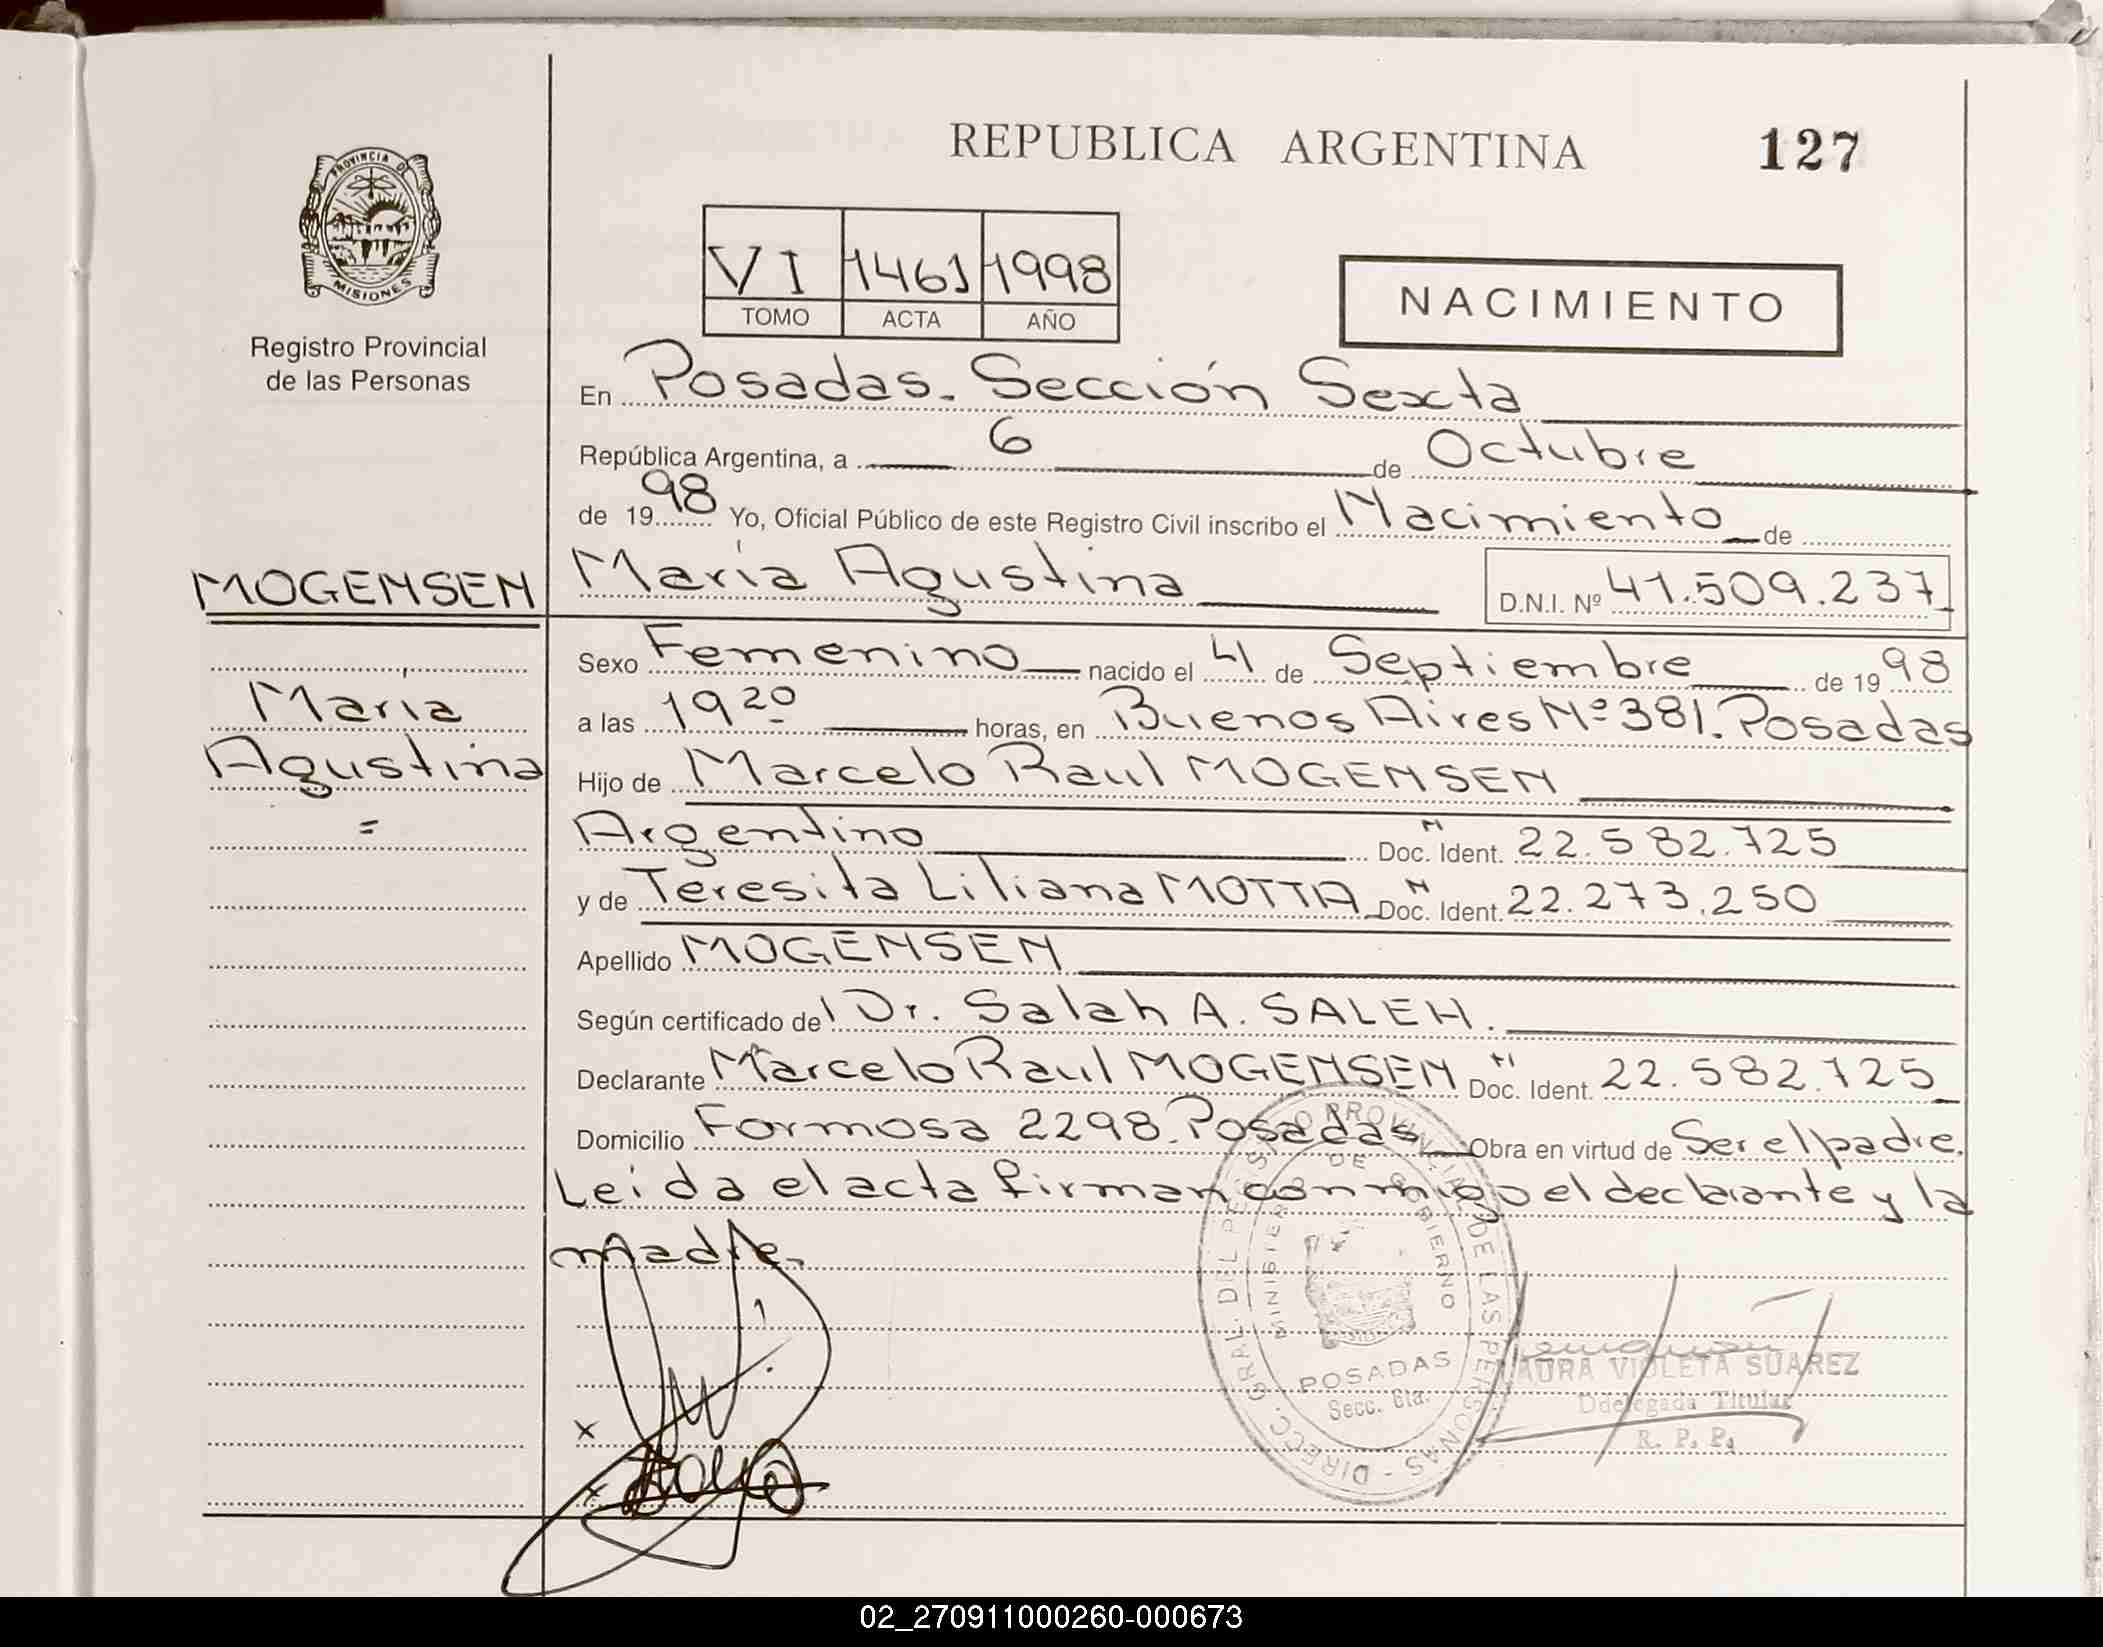 REPUBLICA ARGENTINA
127
PROVINCIA DE
MISIONES
Registro Provincial
de las Personas
VI 1461 1998
TOMO ACTA AÑO
NACIMIENTO
En Posadas. Sección Sexta
República Argentina, a 6 de Octubre
de 1998 Yo, Oficial Público de este Registro Civil inscribo el Nacimiento de
MOGENSEN
María Agustina D.N.I. Nº 41.509.237
Sexo Femenino nacido el 4 de Septiembre de 1998
María
Agustina
=
a las 19 20 horas, en Buenos Aires Nº 381. Posadas
Hijo de Marcelo Raul MOGENSEN
Argentino Doc. Ident. 22.582.725
y de Teresita Liliana MOTTA Doc. Ident. 22.273.250
Apellido MOGENSEN
Según certificado del Dr. Salah A. SALEH.
Declarante Marcelo Raul MOGENSEN Doc. Ident. 22.582.725
Domicilio Formosa 2298. Posadas Obra en virtud de Ser el padre.
Leida el acta firman conmigo el declarante y la
madre.
DIRECC. GRAL. DEL REGISTRO PROVINCIAL DE LAS PERSONAS
MINISTERIO DE GOBIERNO
POSADAS
Secc. 6ta.
LAURA VIOLETA SUAREZ
Ddelegada Titular
R. P. P.
02_270911000260-000673